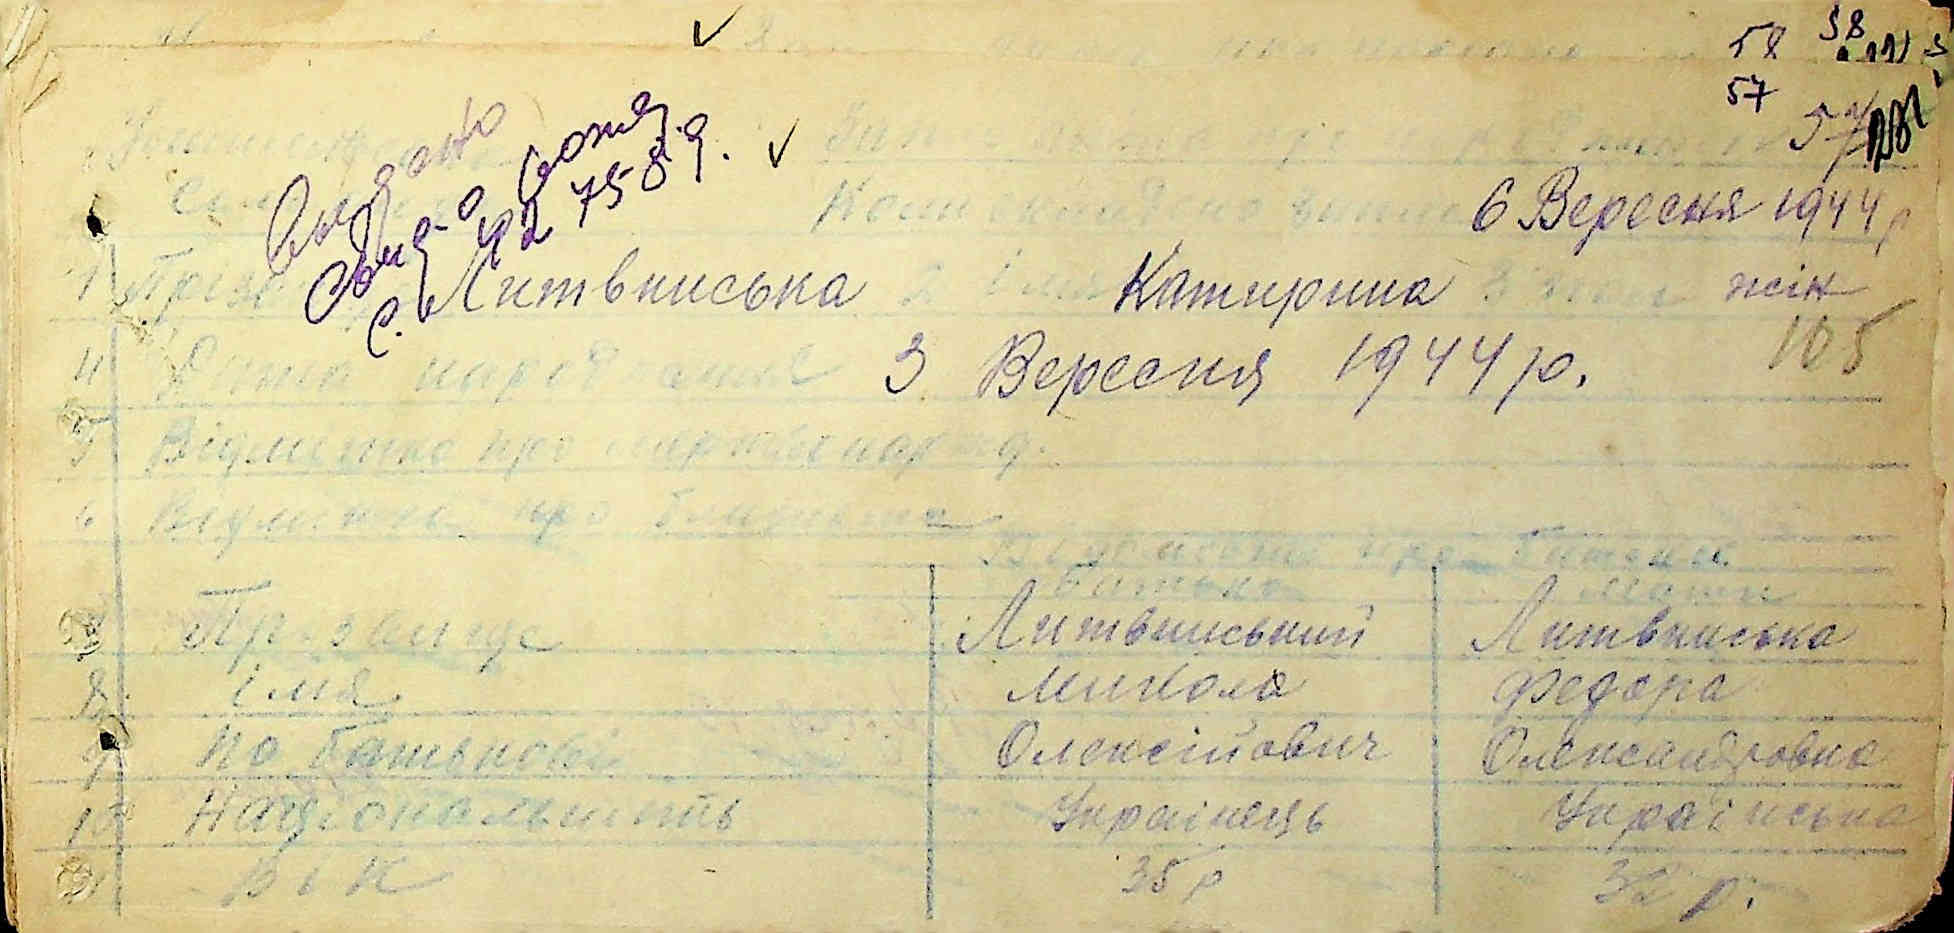 58 38
57
57
Выдано
Свид-о
С. 42 7589.
Запис про
Коли складено запис 6 Вересня 1944 р
1 Прізв Литвинська 2 імя Катирина 3 пол жін
4 Дата народження 3 Вересня 1944 р. 105
5 Відмітка про мертвонарод.
6 Відмітка про близнята
Відомости про батьків
батько мати
Прізвище Литвинський Литвинська
8. імя Микола Федора
9 по батькові Олексійович Олександровна
10 Національність Українець Українська
Вік 35 р 32 р.